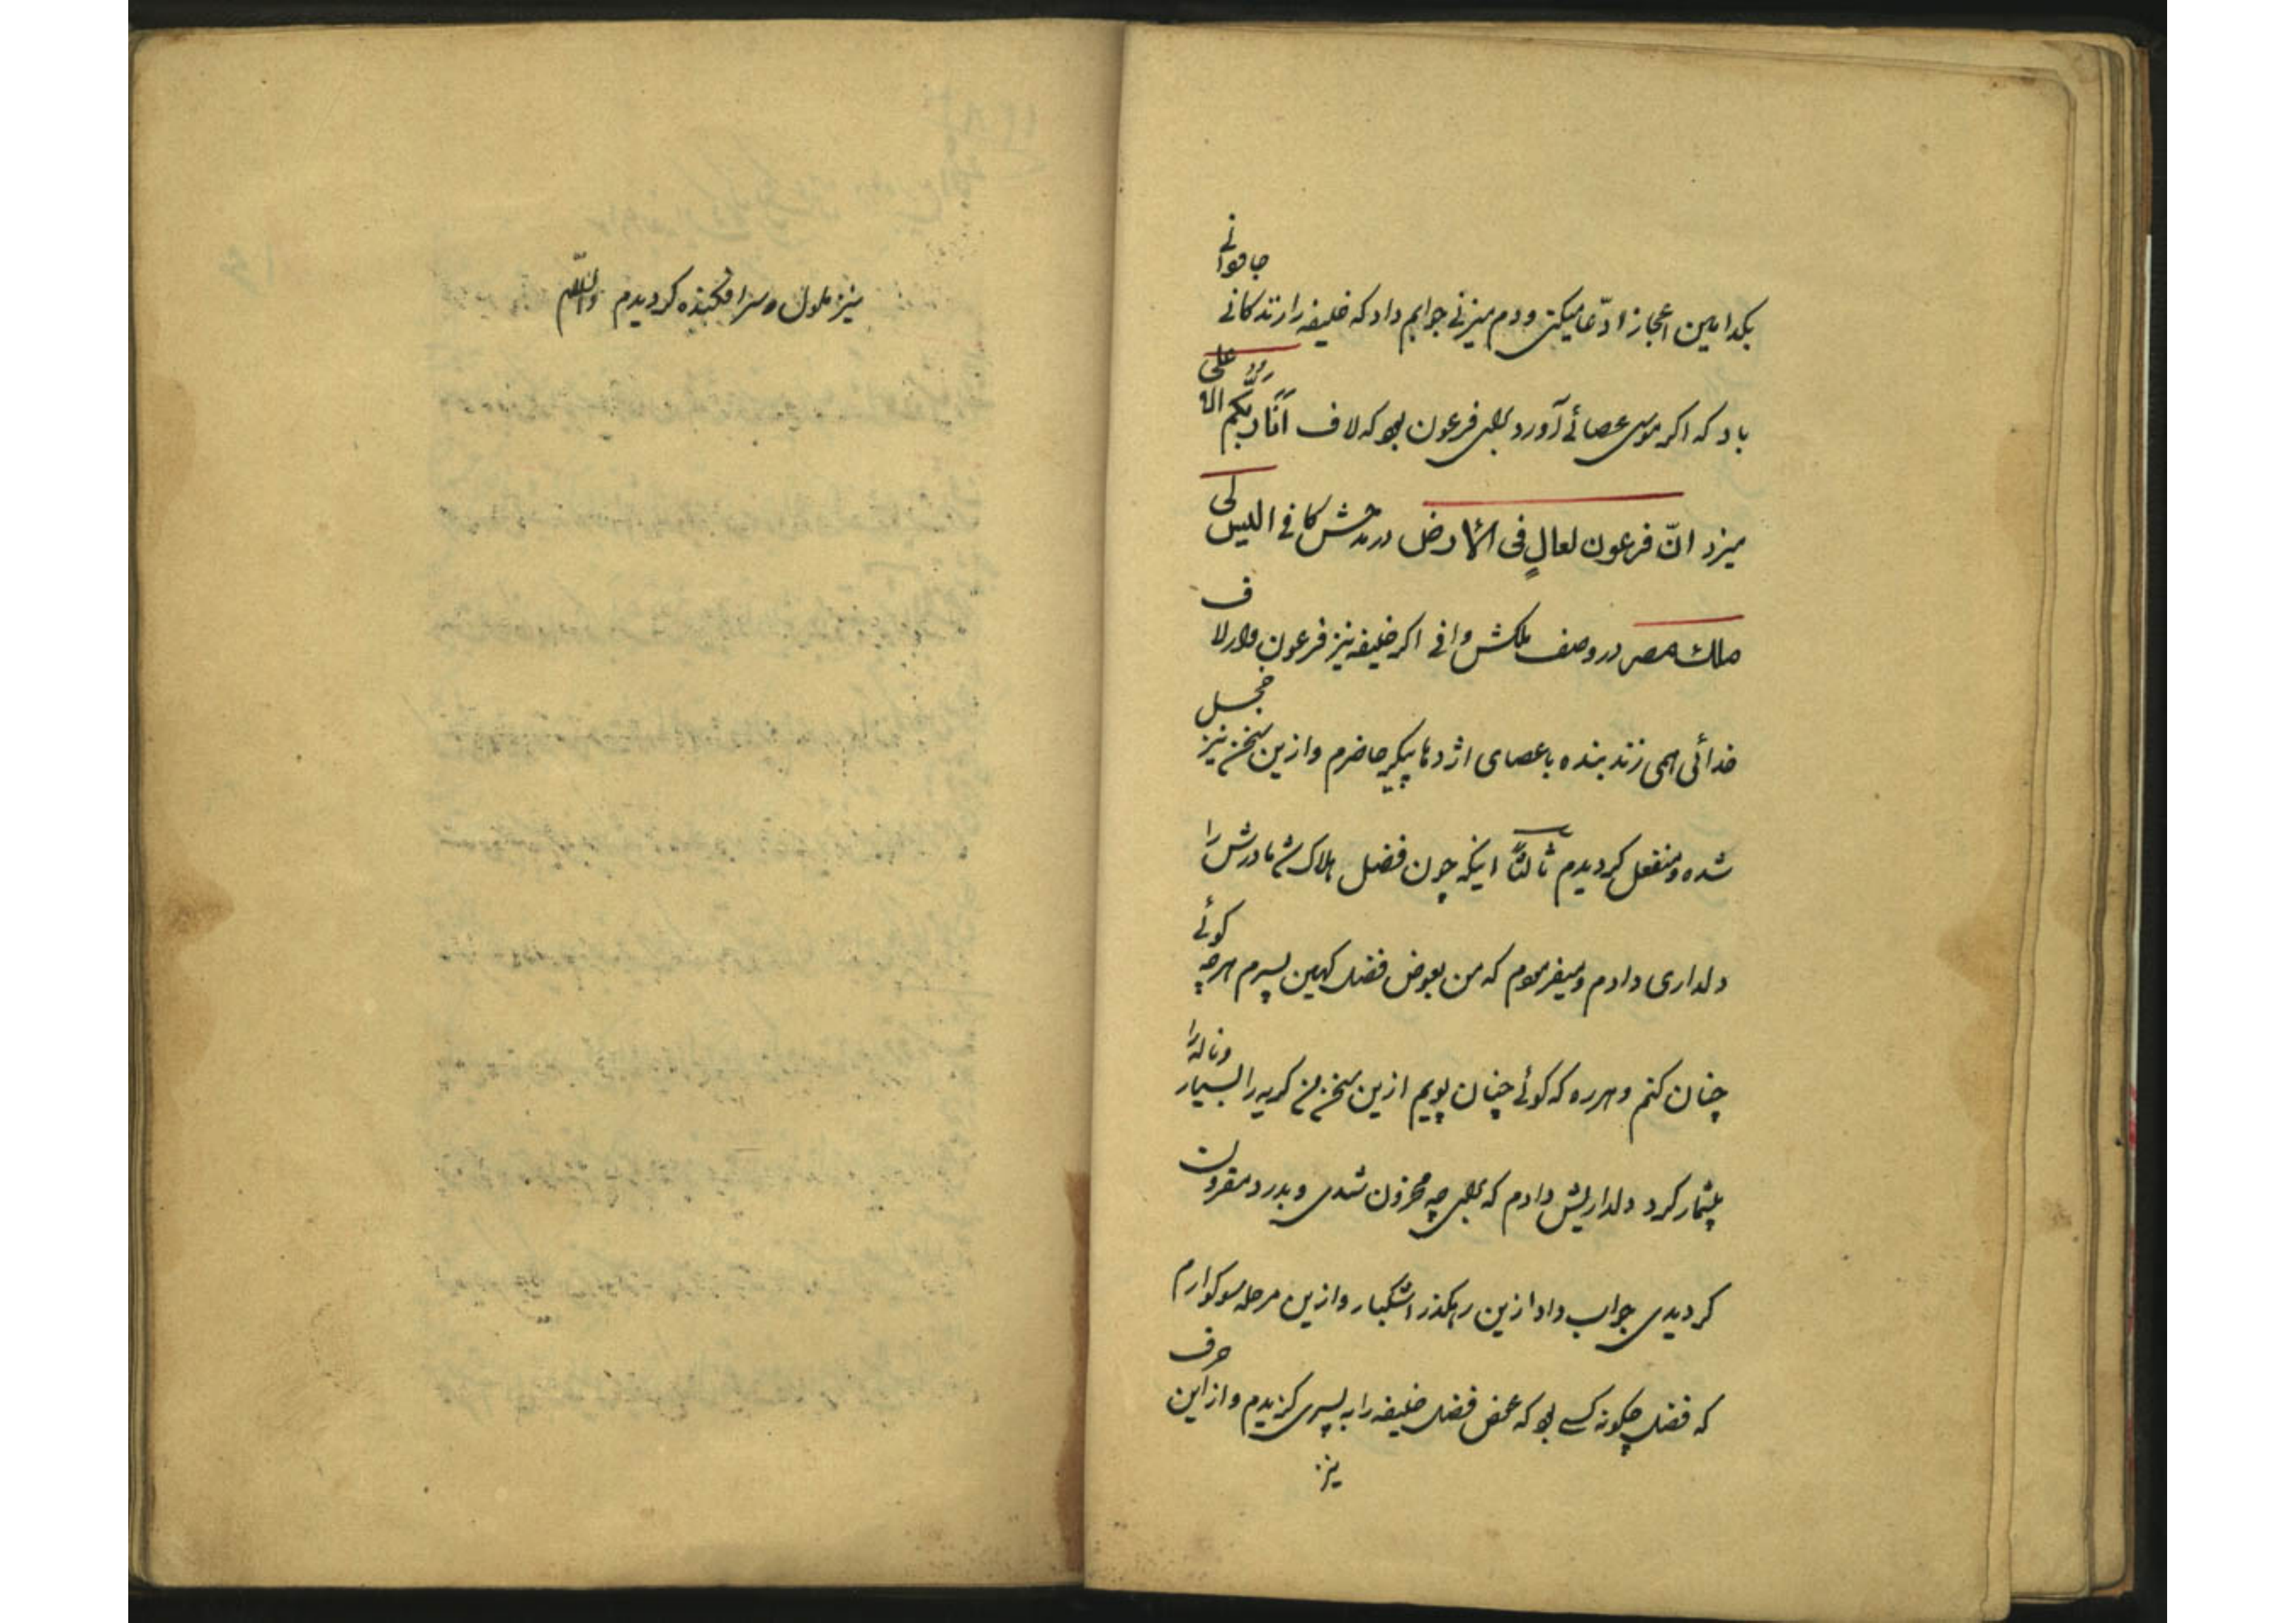 بکدامین اعجاز ادّعا میکنی ودم میزنی جوابم داد که خلیفه را زندکانی جاودانی
باد که اکر موسی عصائی آورد بلی فرعون بود که لاف اَنَا رَبُّکُم الا علی
میزد انّ فرعون لعالٍ فی الارض در مدحش کافی الیس لی
ملک مصر در وصف ملکش وافی اکر خلیفه نیز فرعون وار لاف
خدائی همی زند بنده با عصای اژدها پیکر حاضرم وازین سخن نیز خجل
شده ومنفعل کردیدم ثالثاً اینکه چون فضل هلاک شد مادرش را
دلداری دادم ومیفرمودم که من بعوض فضل کهین پسرم هرچه کوئی
چنان کنم وهر ره که کوئی چنان پویم ازین سخن من کریه را بسیار وناله را
بیشمار کرد دلداریش دادم که بلی چه محزون شدی وبدرد مقرون
کردیدی جواب داد ازین رهکذر اشکبار وازین مرحله سوکوارم
که فضل چکونه کسی بود که عوض فضل خلیفه را به پسری کزیدم وازاین حرف
نیز
نیز ملول وسرافکنده کردیدم والسّلام